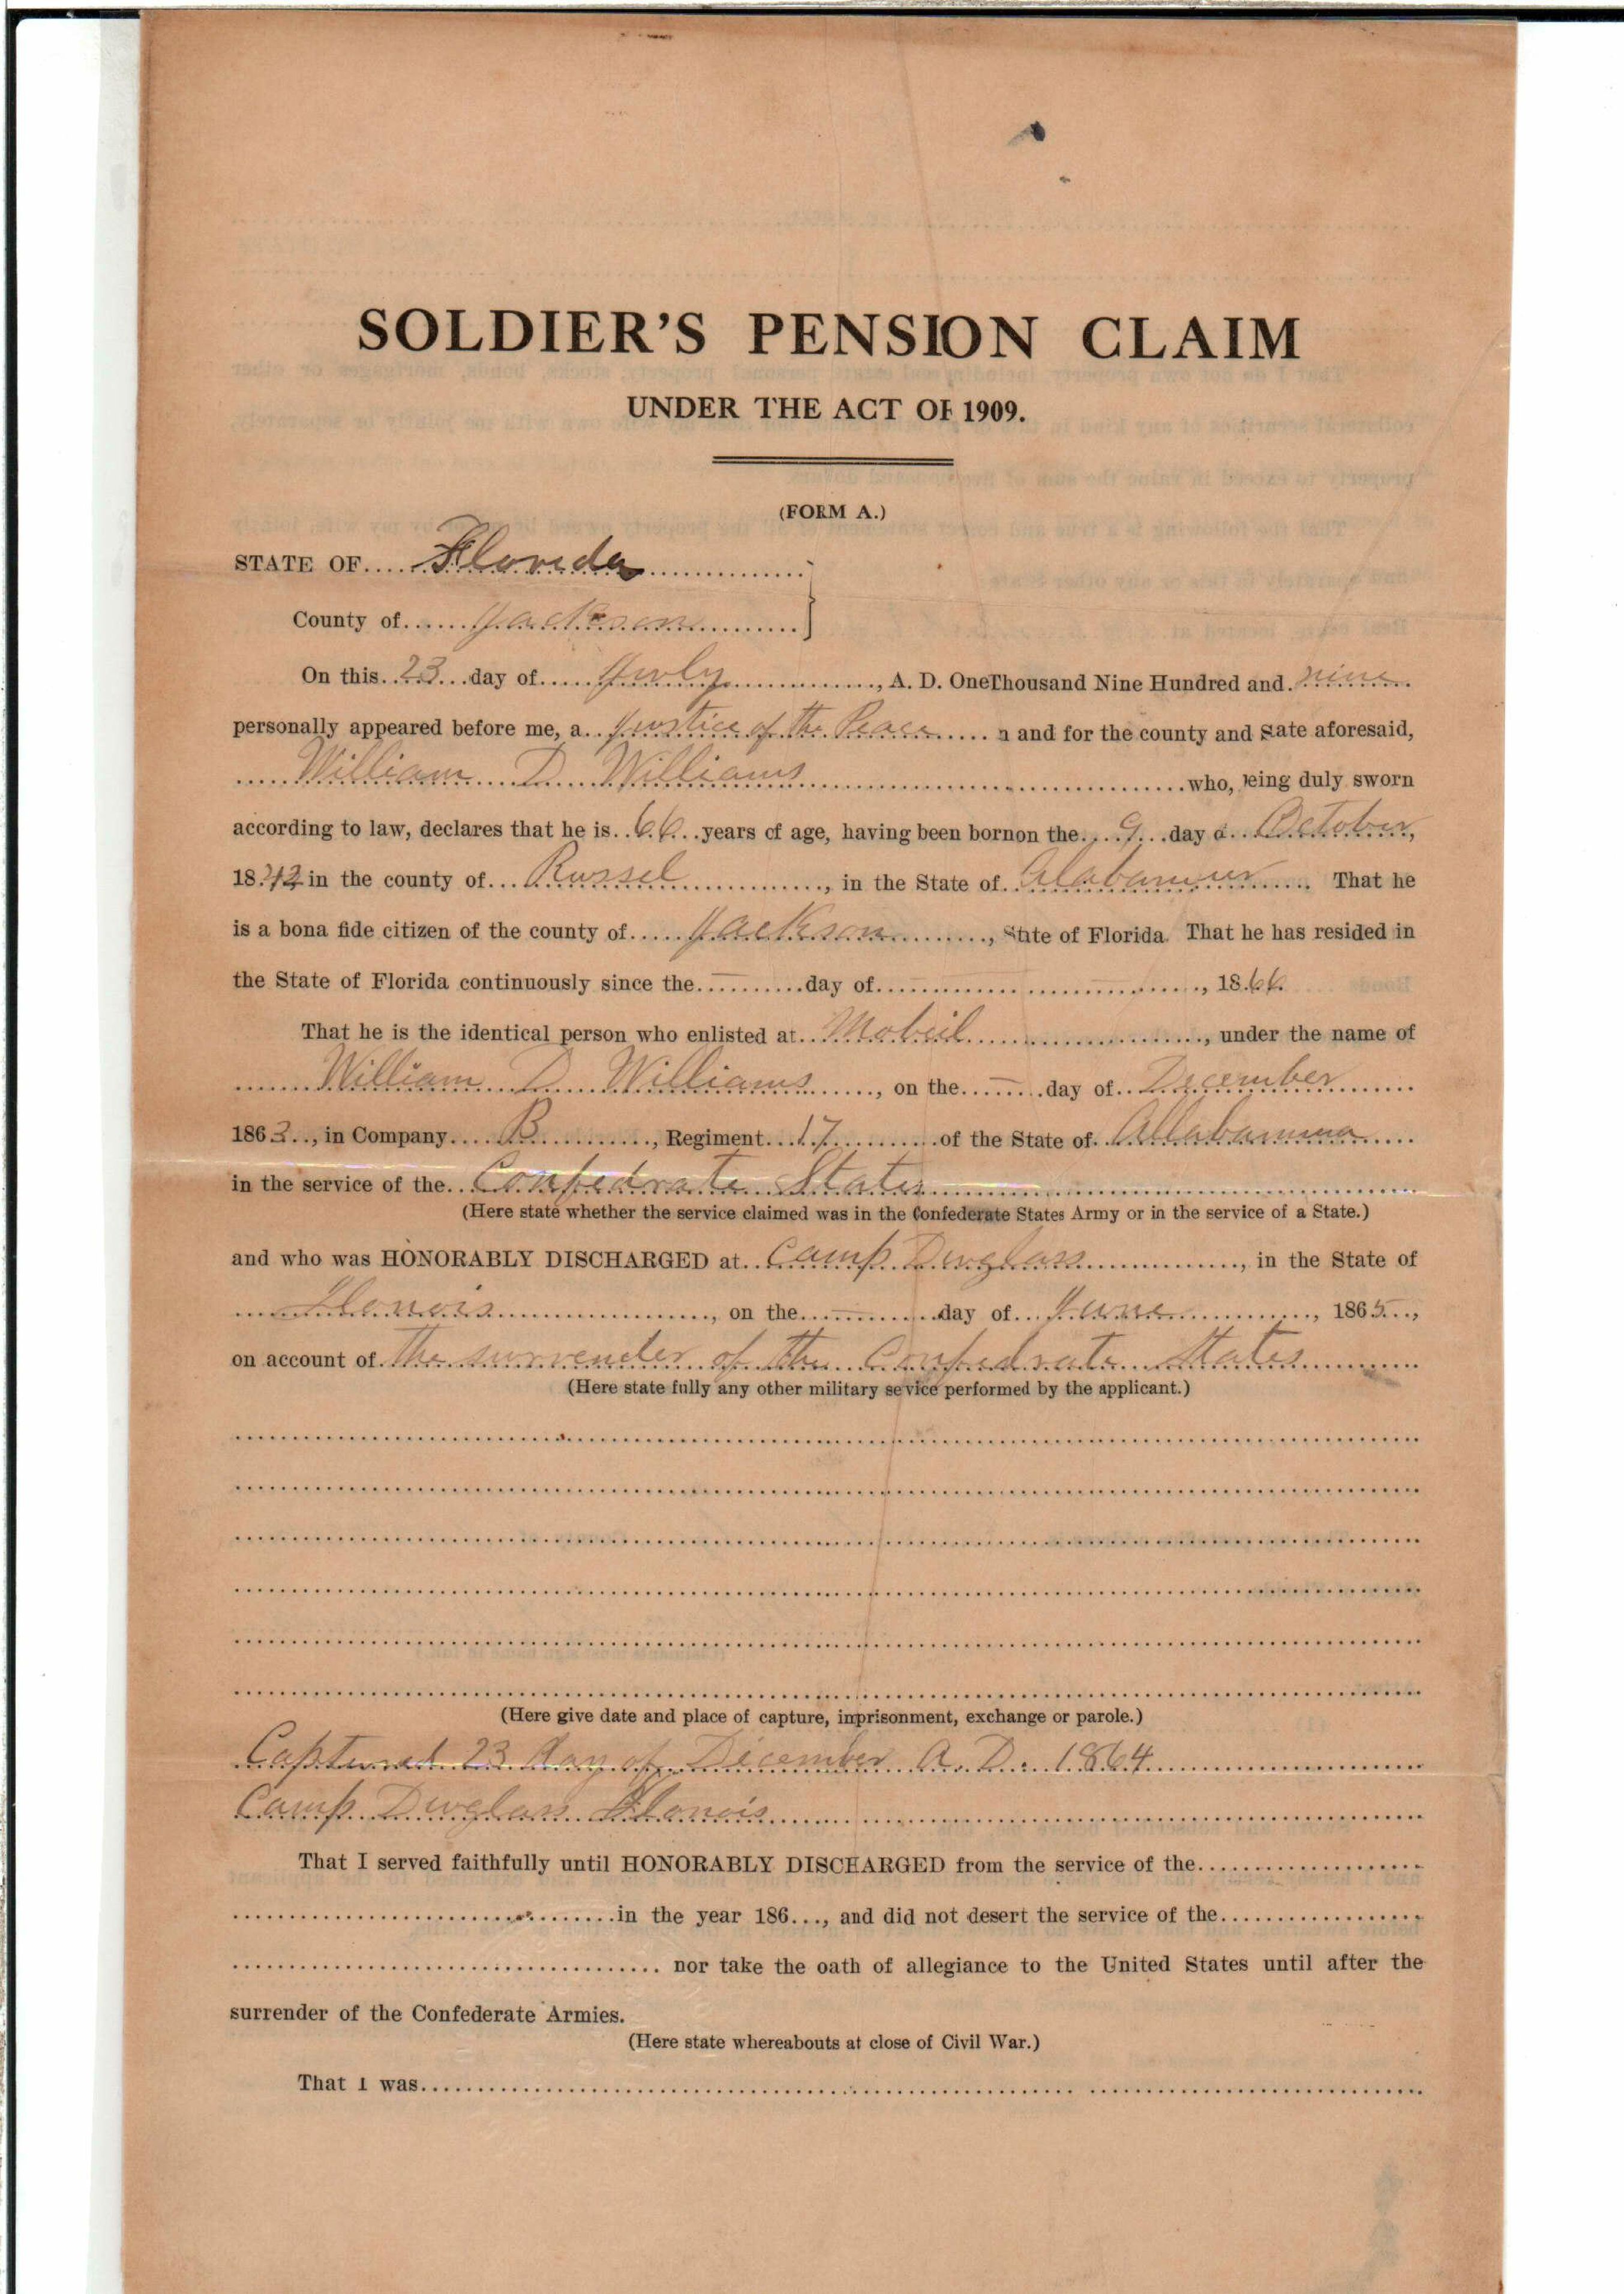 SOLDIER'S PENSION CLAIM
UNDER THE ACT OF 1909.
(FORM A.)
STATE OF.... Florida
County of...... Jackson
On this 23 day of July, A. D. One Thousand Nine Hundred and nine
personally appeared before me, a Justice of the Peace n and for the county and State aforesaid,
William D. Williams who, being duly sworn
according to law, declares that he is 66 years of age, having been born on the 9 day of October,
1842 in the county of Russel, in the State of Alabamma. That he
is a bona fide citizen of the county of Jackson, State of Florida. That he has resided in
the State of Florida continuously since the — day of —, 1866
That he is the identical person who enlisted at Mobeil, under the name of
William D. Williams, on the — day of December
1863, in Company B, Regiment 17 of the State of Allabamma
in the service of the Confedrate States
(Here state whether the service claimed was in the Confederate States Army or in the service of a State.)
and who was HONORABLY DISCHARGED at Camp Duglass, in the State of
Illonois, on the — day of June, 1865,
on account of The surrender of the Confedrate States
(Here state fully any other military sevice performed by the applicant.)
(Here give date and place of capture, imprisonment, exchange or parole.)
Captured 23 day of December A. D. 1864
Camp Duglass Illonois
That I served faithfully until HONORABLY DISCHARGED from the service of the
in the year 186..., and did not desert the service of the
nor take the oath of allegiance to the United States until after the
surrender of the Confederate Armies.
(Here state whereabouts at close of Civil War.)
That I was